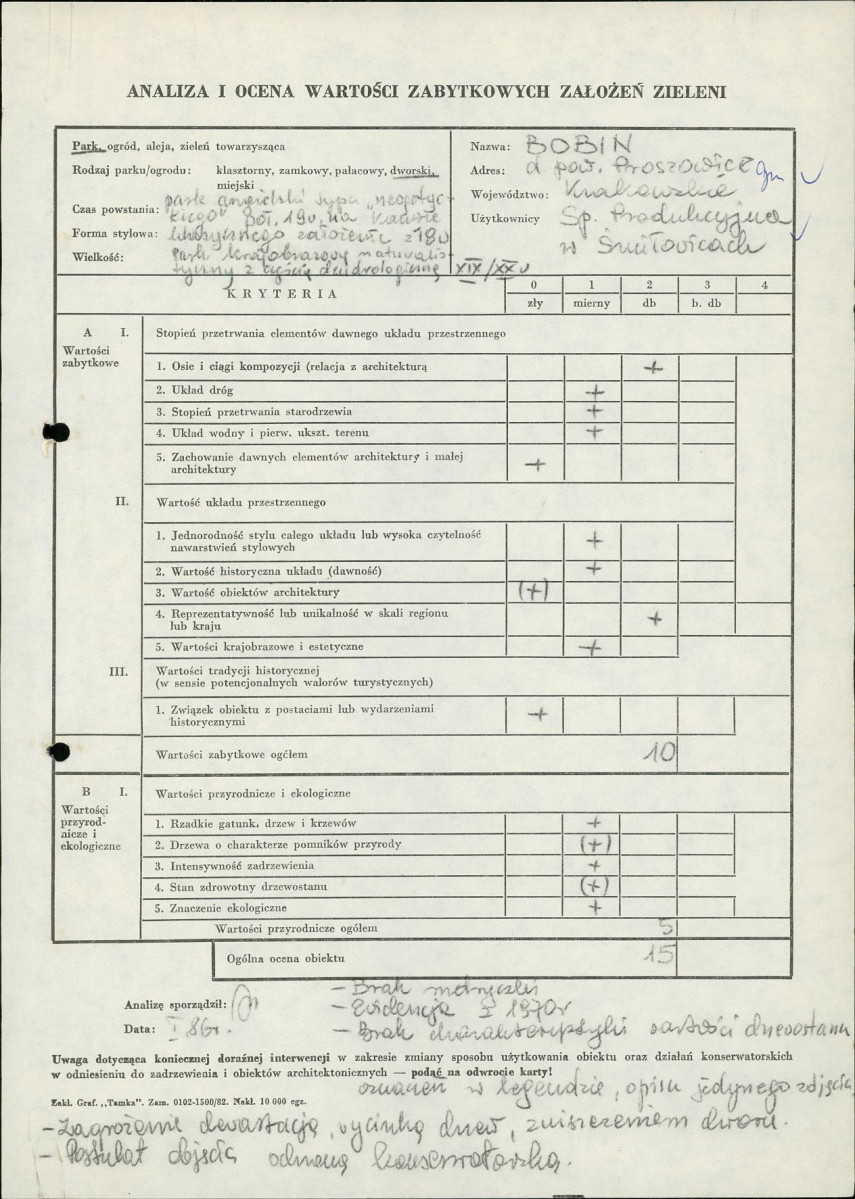 ANALIZA I OCENA WARTOŚCI ZABYTKOWYCH ZAŁOŻEŃ ZIELENI
Park, ogród, aleja, zieleń towarzysząca
Rodzaj parku/ogrodu: klasztorny, zamkowy, pałacowy, dworski, miejski
Czas powstania: park angielski typu „neogotyc-
kiego" Poł. 19w, na kanwie
Forma stylowa: klasycznego założenia z 18w
Wielkość: park krajobrazowy naturalis-
tyczny z częścią dendrologiczną XIX/XX w
Nazwa: BOBIN
Adres: d. pow. Proszowice gm
Województwo: Krakowskie
Użytkownicy Sp. Produkcyjna
w Śmiłowicach
KRYTERIA
0 1 2 3 4
zły mierny db b. db
A I. Stopień przetrwania elementów dawnego układu przestrzennego
Wartości
zabytkowe
1. Osie i ciągi kompozycji (relacja z architekturą +
2. Układ dróg +
3. Stopień przetrwania starodrzewia +
4. Układ wodny i pierw. ukszt. terenu +
5. Zachowanie dawnych elementów architektury i małej
architektury +
II. Wartość układu przestrzennego
1. Jednorodność stylu całego układu lub wysoka czytelność
nawarstwień stylowych +
2. Wartość historyczna układu (dawność) +
3. Wartość obiektów architektury (+)
4. Reprezentatywność lub unikalność w skali regionu
lub kraju +
5. Wartości krajobrazowe i estetyczne +
III. Wartości tradycji historycznej
(w sensie potencjonalnych walorów turystycznych)
1. Związek obiektu z postaciami lub wydarzeniami
historycznymi +
Wartości zabytkowe ogółem 10
B I. Wartości przyrodnicze i ekologiczne
Wartości
przyrod-
nicze i
ekologiczne
1. Rzadkie gatunk. drzew i krzewów +
2. Drzewa o charakterze pomników przyrody (+)
3. Intensywność zadrzewienia +
4. Stan zdrowotny drzewostanu (+)
5. Znaczenie ekologiczne +
Wartości przyrodnicze ogółem 5
Ogólna ocena obiektu 15
- Brak metryczki
Analizę sporządził:
- Ewidencja z 1970r
Data: I 86r.
- Brak charakterystyki wartości drzewostanu
Uwaga dotycząca koniecznej doraźnej interwencji w zakresie zmiany sposobu użytkowania obiektu oraz działań konserwatorskich
w odniesieniu do zadrzewienia i obiektów architektonicznych — podać na odwrocie karty!
oznaczeń w legendzie, opisu jedynego zdjęcia,
Zakł. Graf. „Tamka". Zam. 0102-1500/82. Nakł. 10 000 egz.
- Zagrożenie dewastacją, wycinką drzew, zniszczeniem dworu.
- Postulat objęcia ochroną konserwatorską.